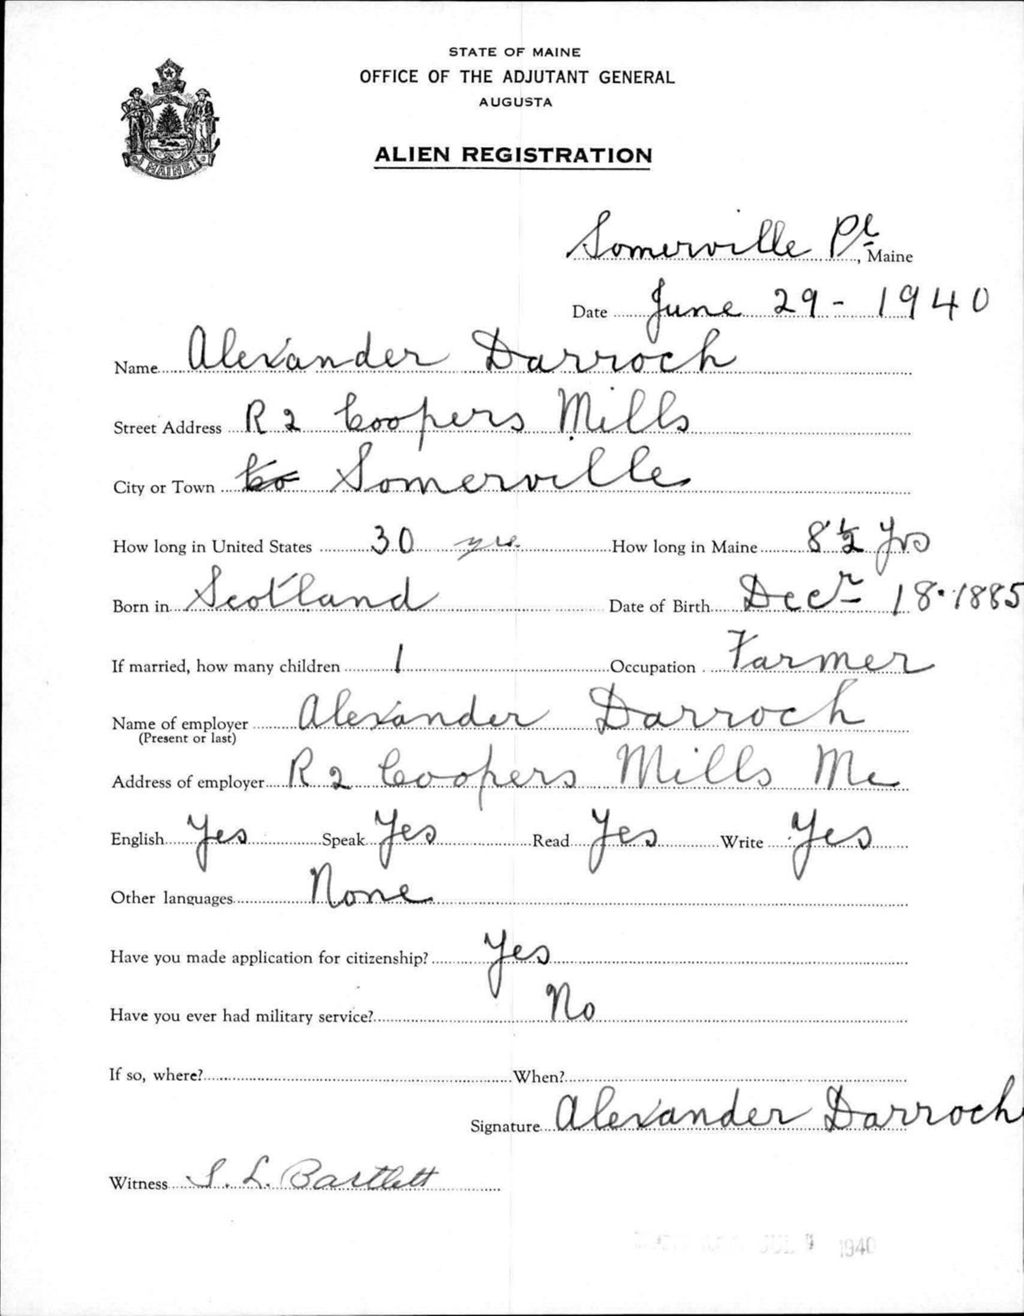 STATE OF MAINE
OFFICE OF THE ADJUTANT GENERAL
AUGUSTA
ALIEN REGISTRATION
MAINE
Somerville Pl, Maine
Date June 29 - 1940
Name Alexander Darroch
Street Address R 2 Coopers Mills
City or Town Co Somerville
How long in United States 30 yrs. How long in Maine 8 1/2 Yrs
Born in Scotland Date of Birth Decr 18 · 1885
If married, how many children 1 Occupation Farmer
Name of employer Alexander Darroch
(Present or last)
Address of employer R 2 Coopers Mills Me
English Yes Speak Yes Read Yes Write Yes
Other languages None
Have you made application for citizenship? Yes
Have you ever had military service? No
If so, where? When?
Signature Alexander Darroch
Witness S. L. Bartlett
JUL 9 1940